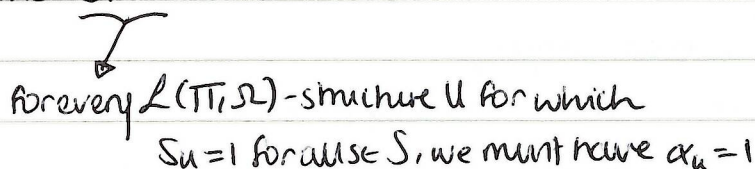 for every L(Π,Ω)-structure U for which
S_U=1 for all s∈S, we must have α_U=1